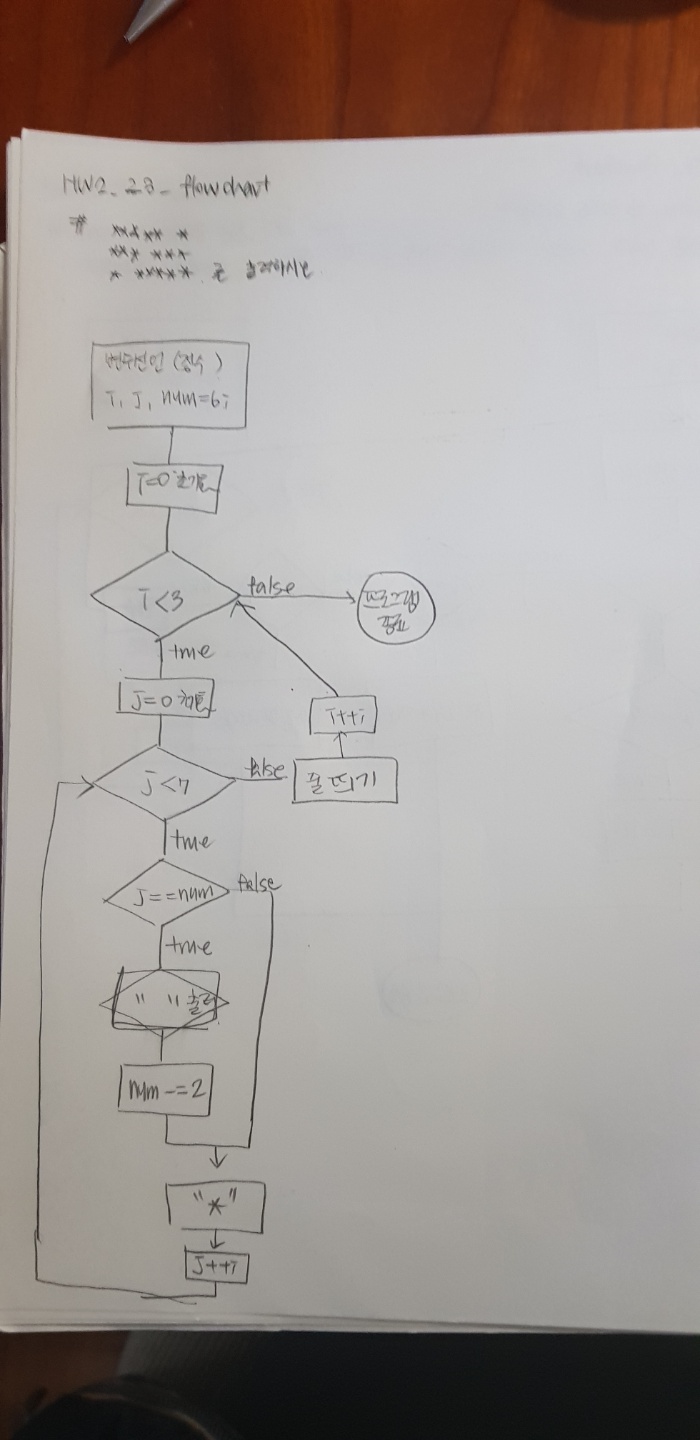 HW2_23_flowchart
# ***** *
*** ***
* ***** 로 출력하시오
변수선언 (정수)
i, j, num=6;
i=0 초기화
i<3
false
프로그램
종료
true
j=0 초기화
i++;
j<7
false
줄 띄기
true
j==num
false
true
" " 출력
num -=2
"*"
j++;